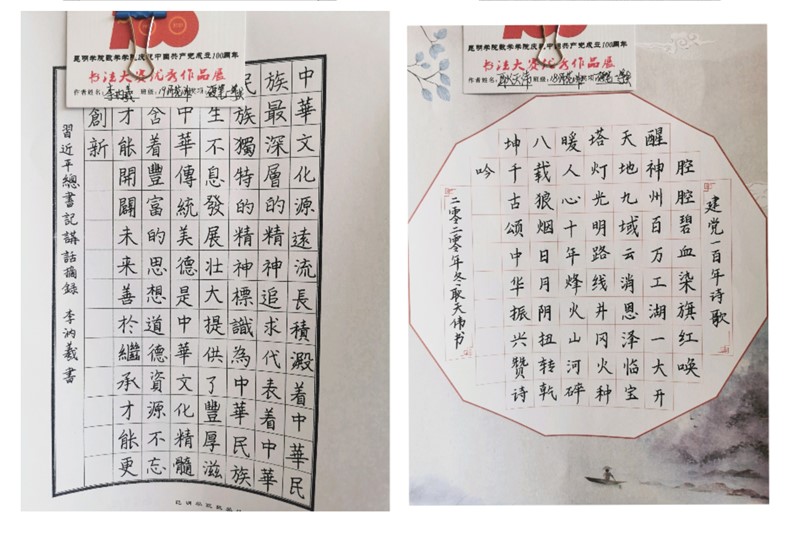 100
昆明学院数学学院庆祝中国共产党成立100周年
书法大赛优秀作品展
作者姓名:李汭羲 班级:
中華文化源遠流長積澱着中華民
族最深層的精神追求代表着中華
民族獨特的精神標識為中華民族
生不息發展壯大提供了豐厚滋
中華傳統美德是中華文化精髓
含着豐富的思想道德資源不忘
才能開闢未来善於繼承才能更
創新
習近平總書記講話摘錄 李汭羲書
昆明学院数学学院庆祝中国共产党成立100周年
书法大赛优秀作品展
作者姓名:耿天伟 班级:
建党一百年诗歌
腔腔碧血染旗红唤
醒神州百万工湖一大开
天地九域云消恩泽临宝
塔灯光明路线井冈火种
暖人心十年烽火山河碎
八载狼烟日月阴扭转乾
坤千古颂中华振兴赞诗
吟
二零二零年冬耿天伟书